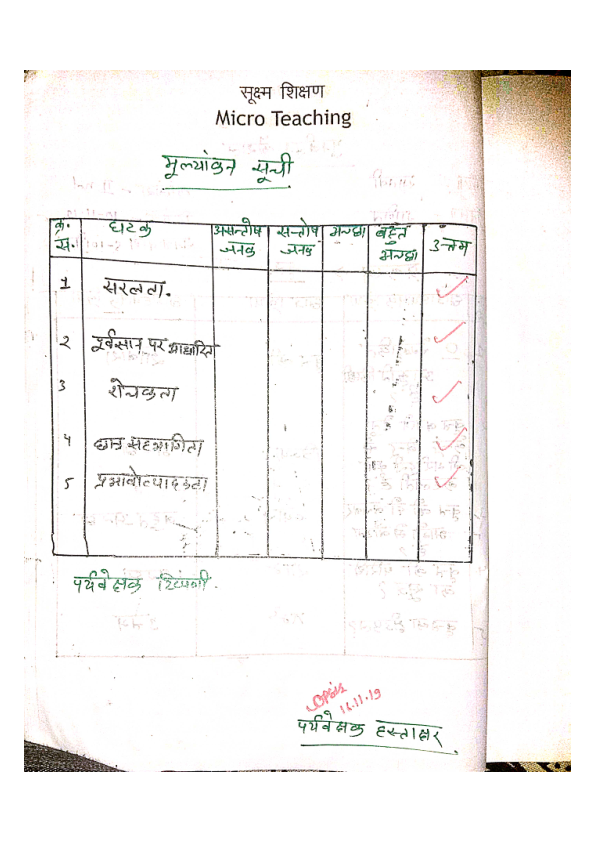 सूक्ष्म शिक्षण
Micro Teaching
मूल्यांकन सूची
क्र. सं. घटक असन्तोष जनक सन्तोष जनक अच्छा बहुत अच्छा उत्तम
1 सरलता.
2 पूर्वज्ञान पर आधारित
3 रोचकता
4 छात्र सहभागिता
5 प्रभावोत्पादकता
पर्यवेक्षक टिप्पणी.
16.11.19
पर्यवेक्षक हस्ताक्षर